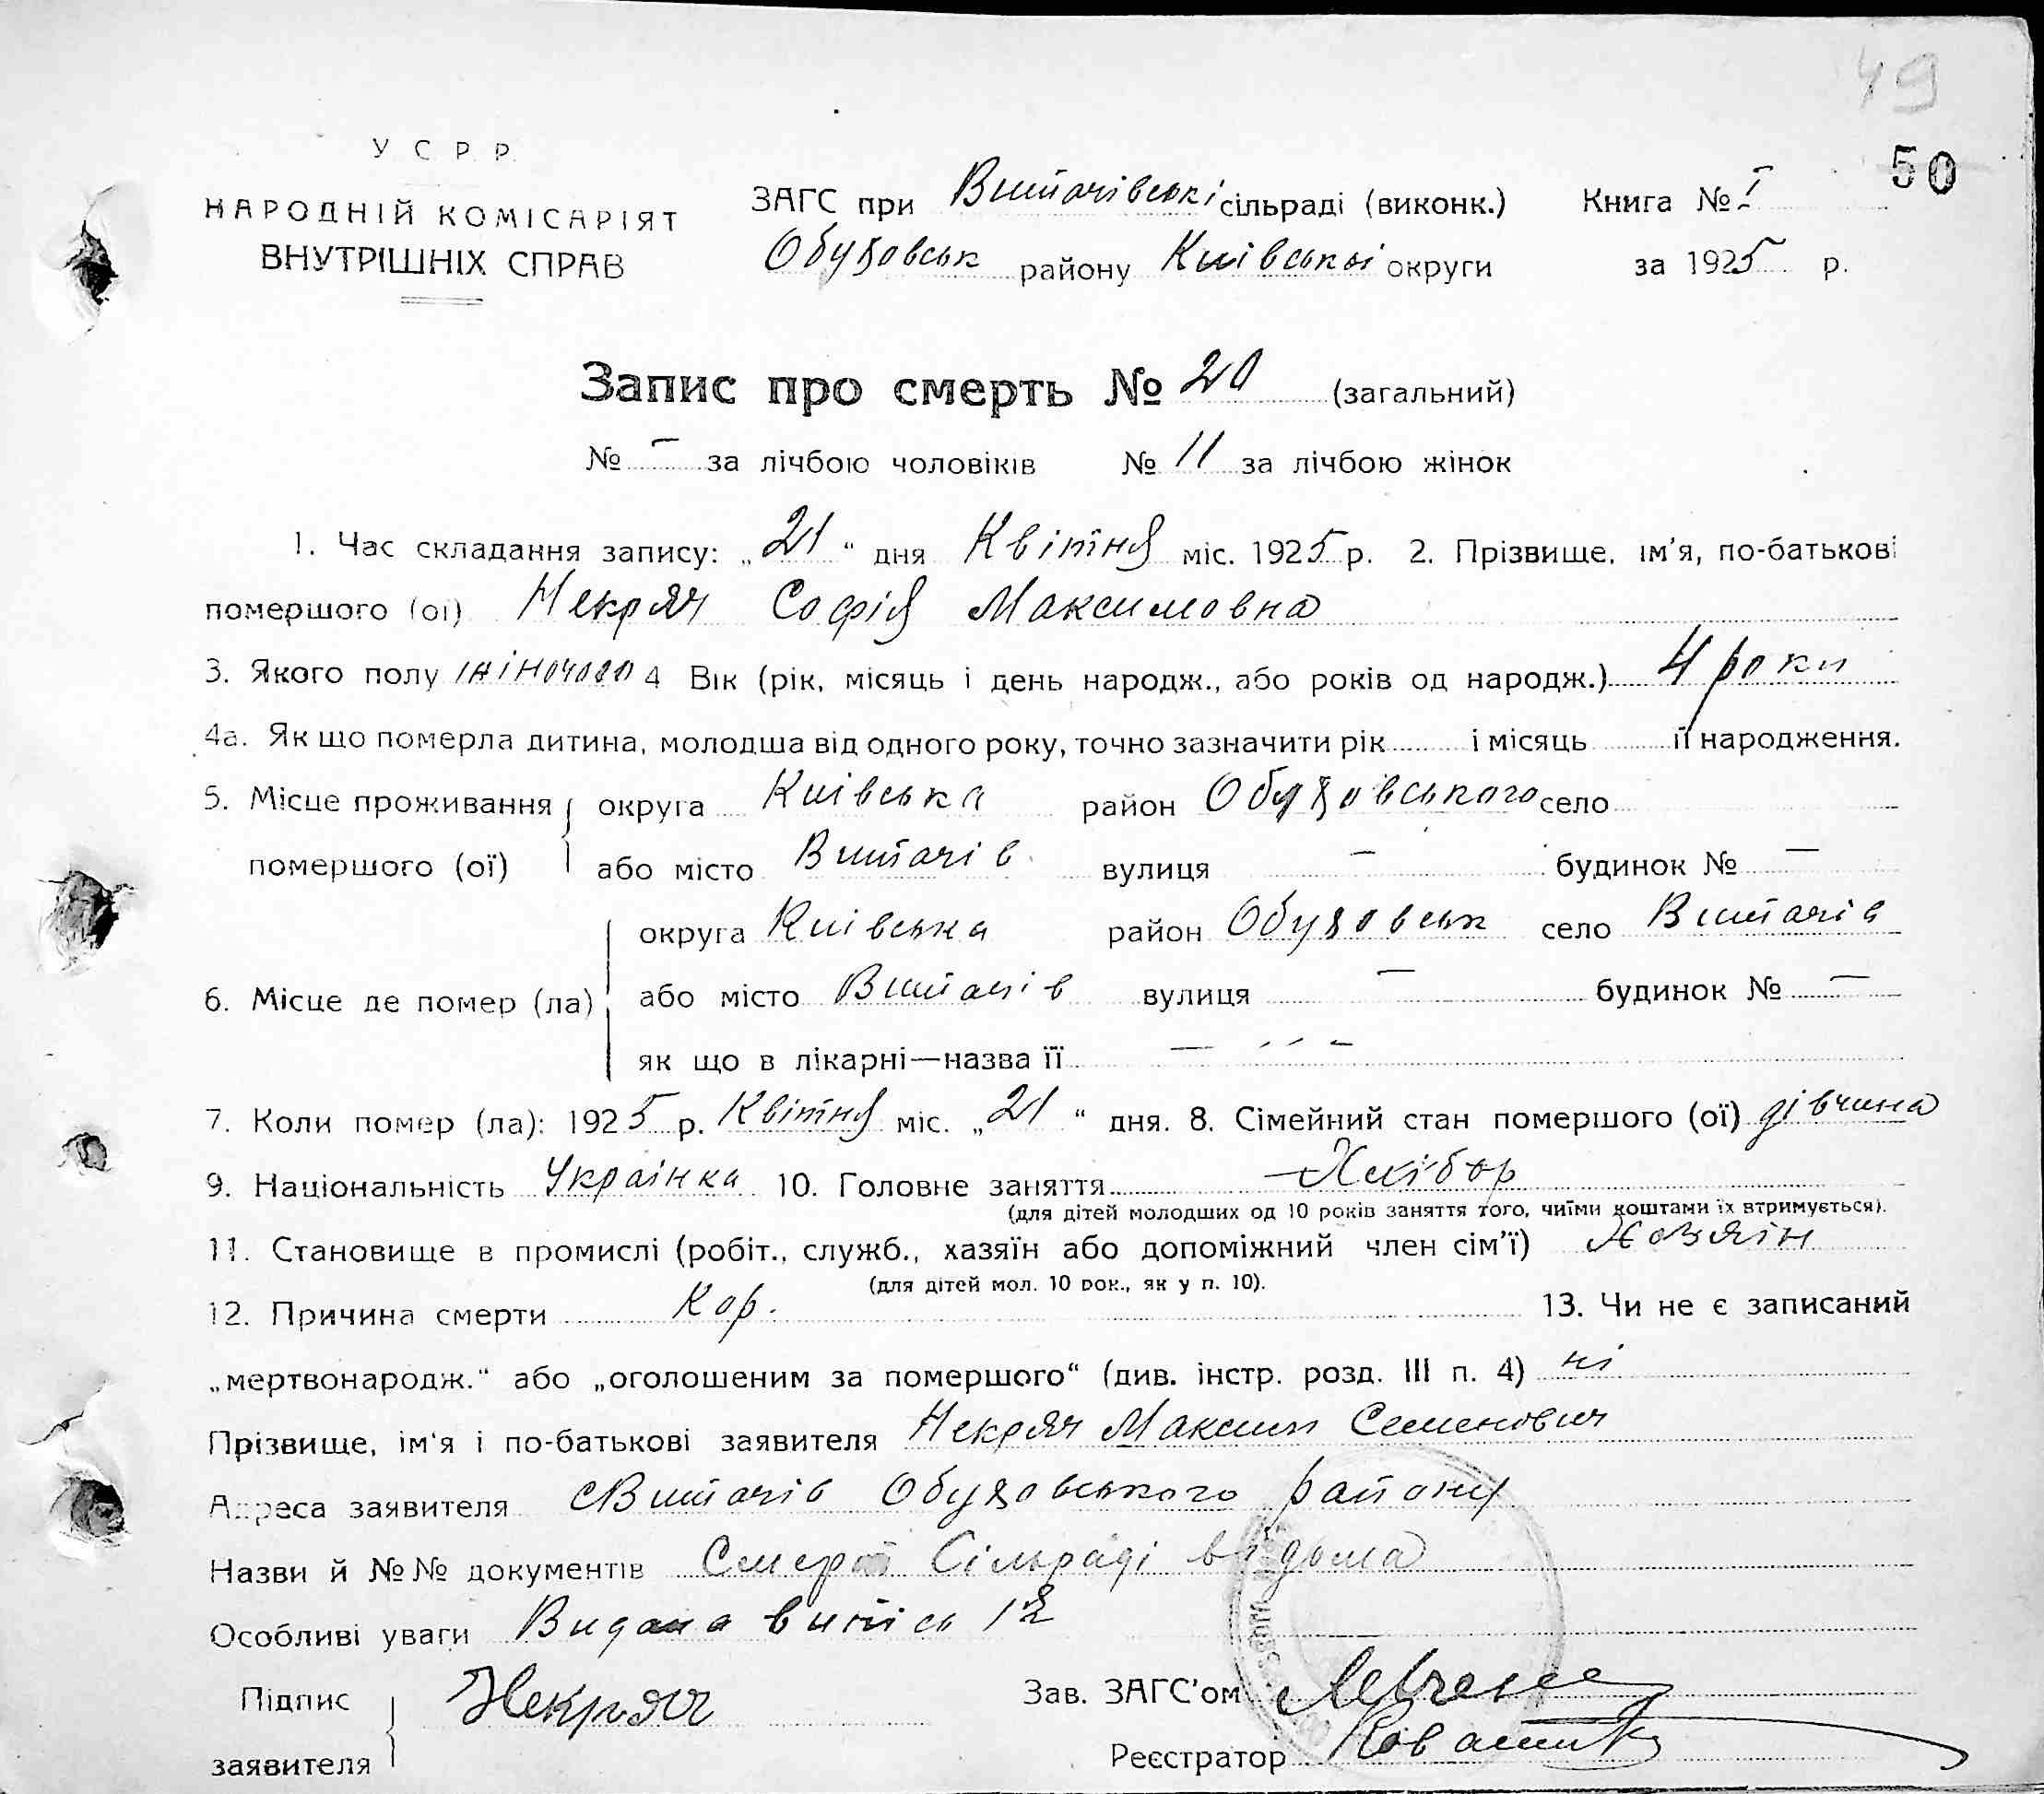 49
50
У С Р Р.
НАРОДНІЙ КОМІСАРІЯТ
ВНУТРІШНІХ СПРАВ
ЗАГС при Витачівські сільраді (виконк.) Книга № I
Обуховськ району Київської округи за 1925 р.
Запис про смерть № 20 (загальний)
№ – за лічбою чоловіків № 11 за лічбою жінок
1. Час складання запису: „21“ дня Квітня міс. 1925 р. 2. Прізвище, ім'я, по-батькові
помершого (ої) Некряч Софія Максимовна
3. Якого полу жіночого 4 Вік (рік, місяць і день народж., або років од народж.) 4 роки
4а. Як що померла дитина, молодша від одного року, точно зазначити рік і місяць її народження.
5. Місце проживання округа Київська район Обуховського село
помершого (ої) або місто Витачів вулиця – будинок № –
округа Київська район Обуховськ село Витачів
6. Місце де помер (ла) або місто Витачів вулиця – будинок № –
як що в лікарні—назва її –
7. Коли помер (ла): 1925 р. Квітня міс. „21“ дня. 8. Сімейний стан помершого (ої) дівчина
9. Національність Українка 10. Головне заняття Хлібор
(для дітей молодших од 10 років заняття того, чиїми коштами їх втримується).
11. Становище в промислі (робіт., служб., хазяїн або допоміжний член сім'ї) Хозяін
(для дітей мол. 10 рок., як у п. 10).
12. Причина смерти Кор. 13. Чи не є записаний
„мертвонародж.“ або „оголошеним за помершого“ (див. інстр. розд. III п. 4) ні
Прізвище, ім'я і по-батькові заявителя Некряч Максим Семенович
Адреса заявителя с Витачів Обуховського району
Назви й №№ документів Смерть Сільраді відома
Особливі уваги Видана випісь
Підпис Некряч Зав. ЗАГС'ом
заявителя Реєстратор